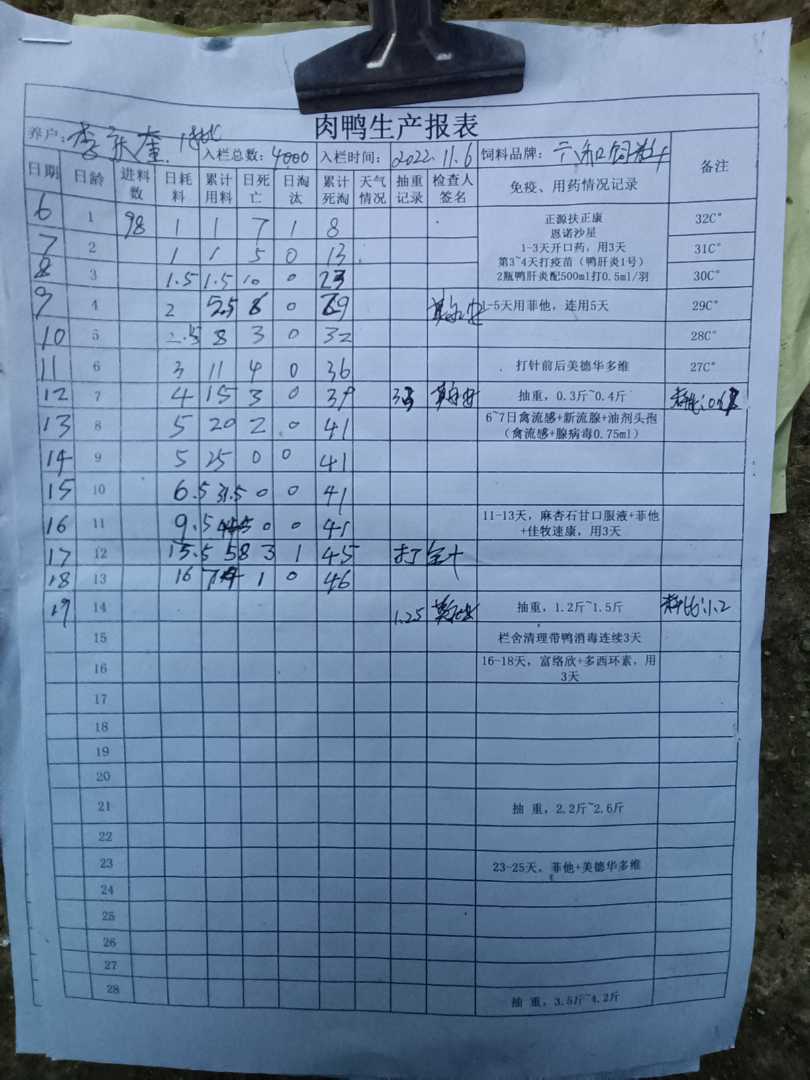 肉鸭生产报表
养户: 李 奎 入栏总数: 4000 入栏时间: 2022.11.6 饲料品牌: 六和饲料
日期 日龄 进料数 日耗料 累计用料 日死亡 日淘汰 累计死淘 天气情况 抽重记录 检查人签名 免疫、用药情况记录 备注
6 1 98 1 1 7 1 8 正源扶正康 32C°
恩诺沙星
7 2 1 1 5 0 13 1-3天开口药，用3天 31C°
第3~4天打疫苗（鸭肝炎1号）
8 3 1.5 1.5 10 0 23 2瓶鸭肝炎配500ml打0.5ml/羽 30C°
9 4 2 5.5 6 0 29 1-5天用菲他，连用5天 29C°
10 5 2.5 8 3 0 32 28C°
11 6 3 11 4 0 36 打针前后美德华多维 27C°
12 7 4 15 3 0 39 抽重，0.3斤~0.4斤
13 8 5 20 2 0 41 6~7日禽流感+新流腺+油剂头孢
（禽流感+腺病毒0.75ml）
14 9 5 25 0 0 41
15 10 6.5 31.5 0 0 41
16 11 9.5 0 0 41 11-13天，麻杏石甘口服液+菲他
+佳牧速康，用3天
17 12 58 3 1 45 打针
18 13 16 74 1 0 46
19 14 1.25 抽重，1.2斤~1.5斤 料比:1.2
15 栏舍清理带鸭消毒连续3天
16 16-18天，富络欣+多西环素，用
3天
17
18
19
20
21 抽 重，2.2斤~2.6斤
22
23 23-25天，菲他+美德华多维
24
25
26
27
28 抽 重，3.5斤~4.2斤